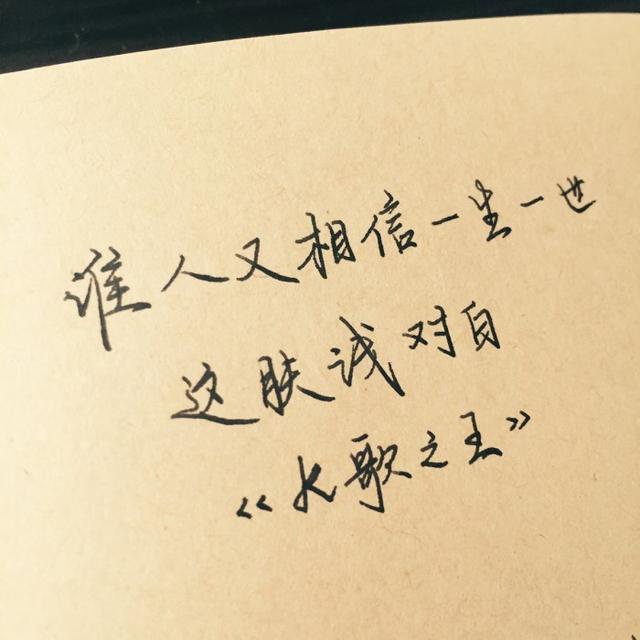 谁人又相信一生一世
这肤浅对白
《K歌之王》